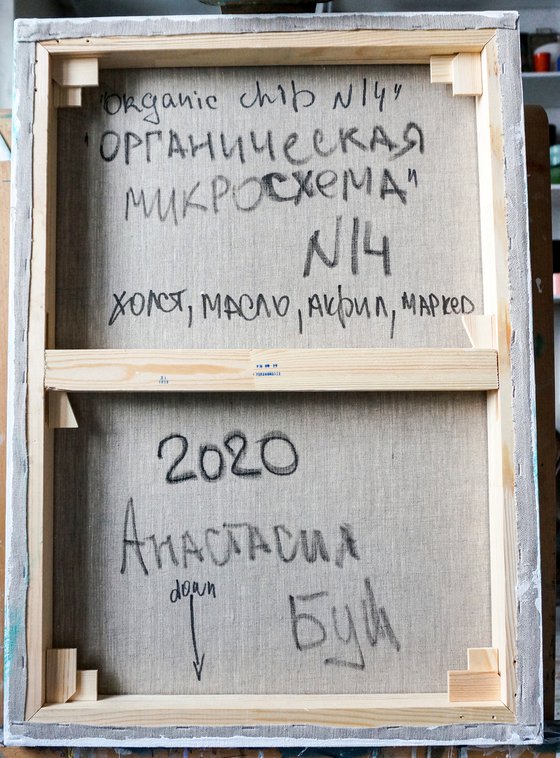 "Organic chip N14"
"ОРГАНИЧЕСКАЯ
МИКРОСХЕМА"
N14
ХОЛСТ, МАСЛО, АКРИЛ, МАРКЕР
2020
АНАСТАСИЯ
down
БУШ